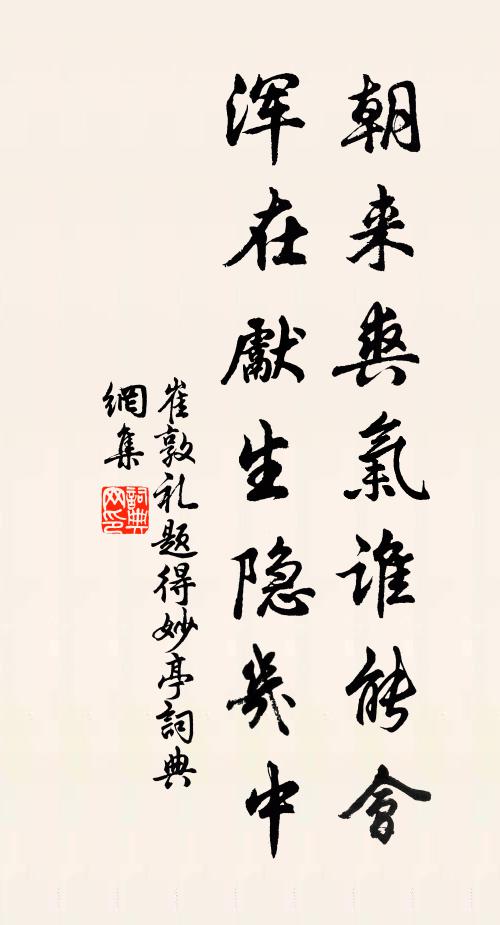 朝来爽氣谁能會
浑在獻生隐几中
崔敦礼题得妙亭詞典
網集
詞典
网印